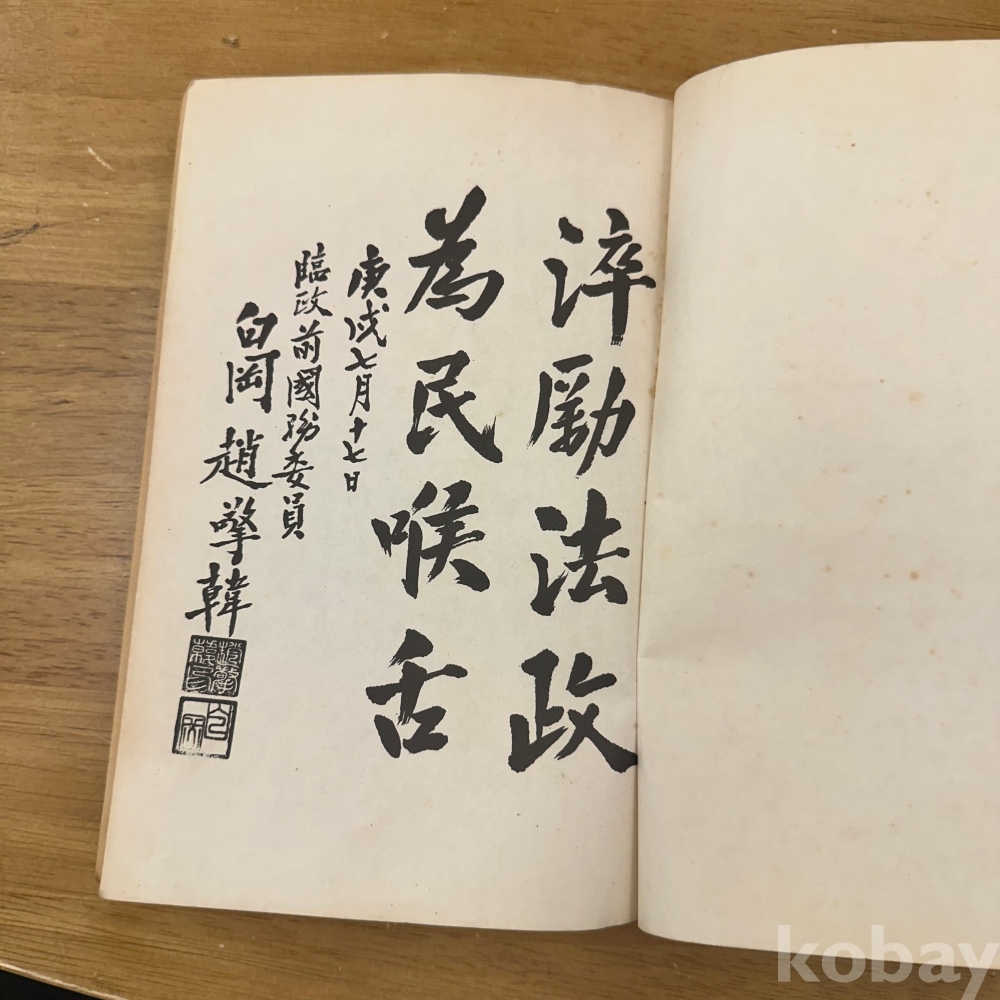 淬勵法政
為民喉舌
庚戌七月十七日
臨政前國務委員
白岡 趙擎韓
趙擎韓印
白岡
kobay